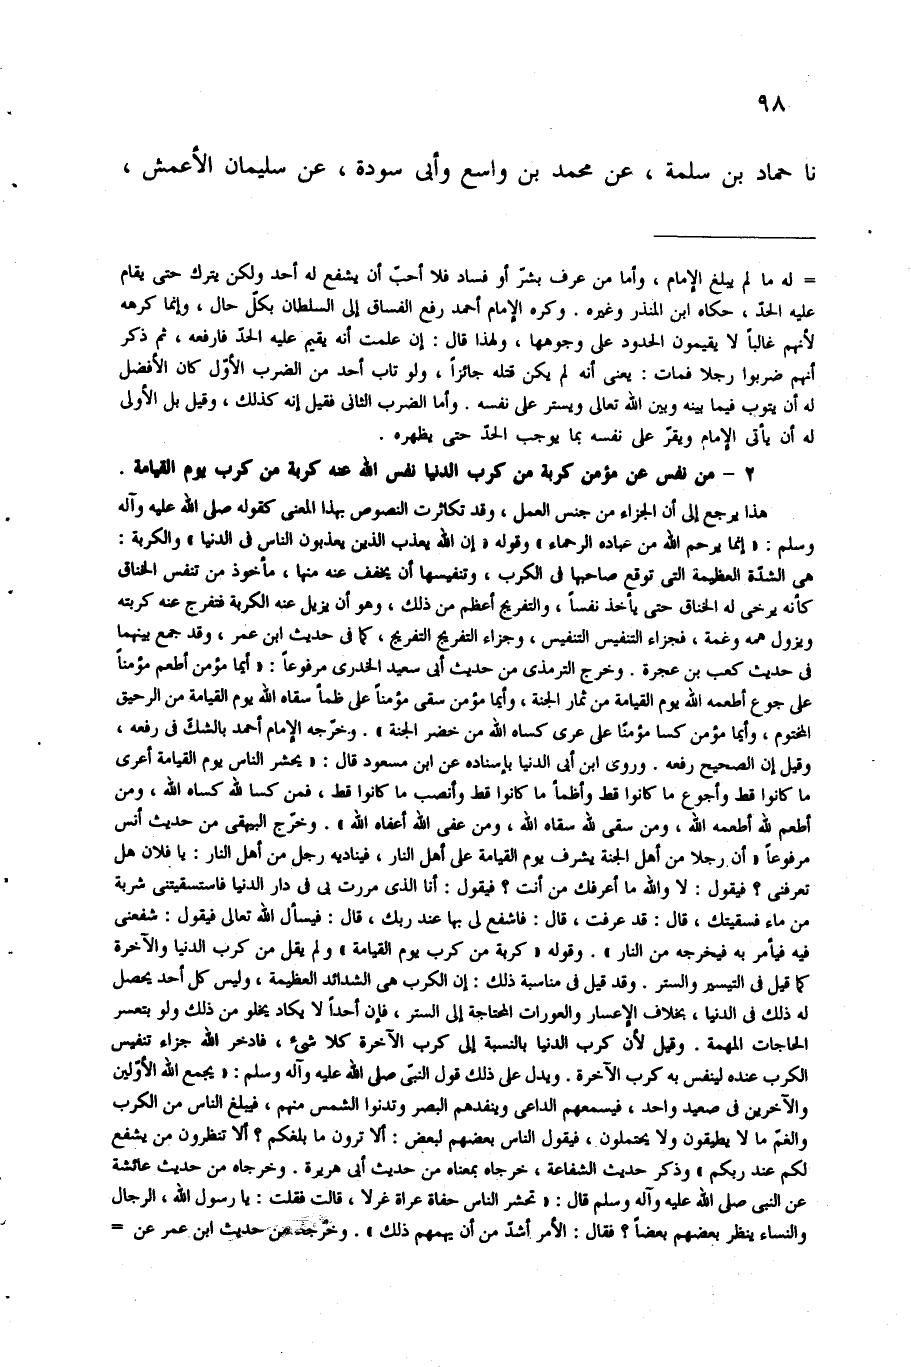 ٩٨
نا حماد بن سلمة ، عن محمد بن واسع وأبى سودة ، عن سليمان الأعمش ،
= له ما لم يبلغ الإمام ، وأما من عرف بشرّ أو فساد فلا أحبّ أن يشفع له أحد ولكن يترك حتى يقام
عليه الحدّ ، حكاه ابن المنذر وغيره . وكره الإمام أحمد رفع الفساق إلى السلطان بكلّ حال ، وإنما كرهه
لأنهم غالباً لا يقيمون الحدود على وجوهها ، ولهذا قال : إن علمت أنه يقيم عليه الحدّ فارفعه ، ثم ذكر
أنهم ضربوا رجلا فمات : يعنى أنه لم يكن قتله جائزاً ، ولو تاب أحد من الضرب الأوّل كان الأفضل
له أن يتوب فيما بينه وبين الله تعالى ويستر على نفسه . وأما الضرب الثانى فقيل إنه كذلك ، وقيل بل الأولى
له أن يأتى الإمام ويقرّ على نفسه بما يوجب الحدّ حتى يظهره .
٢ – من نفس عن مؤمن كربة من كرب الدنيا نفس الله عنه كربة من كرب يوم القيامة .
هذا يرجع إلى أن الجزاء من جنس العمل ، وقد تكاثرت النصوص بهذا المعنى كقوله صلى الله عليه وآله
وسلم : « إنما يرحم الله من عباده الرحماء » وقوله « إن الله يعذب الذين يعذبون الناس فى الدنيا » والكربة :
هى الشدّة العظيمة التى توقع صاحبها فى الكرب ، وتنفيسها أن يخفف عنه منها ، مأخوذ من تنفس الخناق
كأنه يرخى له الخناق حتى يأخذ نفساً ، والتفريج أعظم من ذلك ، وهو أن يزيل عنه الكربة فتفرج عنه كربته
ويزول همه وغمة ، فجزاء التنفيس التنفيس ، وجزاء التفريج التفريج ، كما فى حديث ابن عمر ، وقد جمع بينهما
فى حديث كعب بن عجرة . وخرج الترمذى من حديث أبى سعيد الخدرى مرفوعاً : « أيما مؤمن أطعم مؤمناً
على جوع أطعمه الله يوم القيامة من ثمار الجنة ، وأيما مؤمن سقى مؤمناً على ظمأ سقاه الله يوم القيامة من الرحيق
المختوم ، وأيما مؤمن كسا مؤمنًا على عرى كساه الله من خضر الجنة » . وخرّجه الإمام أحمد بالشكّ فى رفعه ،
وقيل إن الصحيح رفعه . وروى ابن أبى الدنيا بإسناده عن ابن مسعود قال : « يحشر الناس يوم القيامة أعرى
ما كانوا قط وأجوع ما كانوا قط وأظمأ ما كانوا قط وأنصب ما كانوا قط ، فمن كسا لله كساه الله ، ومن
أطعم لله أطعمه الله ، ومن سقى لله سقاه الله ، ومن عفى الله أعفاه الله » . وخرّج البيهقى من حديث أنس
مرفوعاً « أن رجلا من أهل الجنة يشرف يوم القيامة على أهل النار ، فيناديه رجل من أهل النار : يا فلان هل
تعرفنى ؟ فيقول : لا والله ما أعرفك من أنت ؟ فيقول : أنا الذى مررت بى فى دار الدنيا فاستسقيتنى شربة
من ماء فسقيتك ، قال : قد عرفت ، قال : فاشفع لى بها عند ربك ، قال : فيسأل الله تعالى فيقول : شفعنى
فيه فيأمر به فيخرجه من النار » . وقوله « كربة من كرب يوم القيامة » ولم يقل من كرب الدنيا والآخرة
كما قيل فى التيسير والستر . وقد قيل فى مناسبة ذلك : إن الكرب هى الشدائد العظيمة ، وليس كل أحد يحصل
له ذلك فى الدنيا ، بخلاف الإعسار والعورات المحتاجة إلى الستر ، فإن أحداً لا يكاد يخلو من ذلك ولو بتعسر
الحاجات المهمة . وقيل لأن كرب الدنيا بالنسبة إلى كرب الآخرة كلا شىء ، فادخر الله جزاء تنفيس
الكرب عنده لينفس به كرب الآخرة . ويدل على ذلك قول النبىّ صلى الله عليه وآله وسلم : « يجمع الله الأوّلين
والآخرين فى صعيد واحد ، فيسمعهم الداعى وينفدهم البصر وتدنوا الشمس منهم ، فيبلغ الناس من الكرب
والغمّ ما لا يطيقون ولا يحتملون ، فيقول الناس بعضهم لبعض : ألا ترون ما بلغكم ؟ ألا تنظرون من يشفع
لكم عند ربكم » وذكر حديث الشفاعة ، خرجاه بمعناه من حديث أبى هريرة . وخرجاه من حديث عائشة
عن النبى صلى الله عليه وآله وسلم قال : « تحشر الناس حفاة عراة غرلا ، قالت فقلت : يا رسول الله ، الرجال
والنساء ينظر بعضهم بعضاً ؟ فقال : الأمر أشدّ من أن يهمهم ذلك » . وخرّجه من حديث ابن عمر عن =